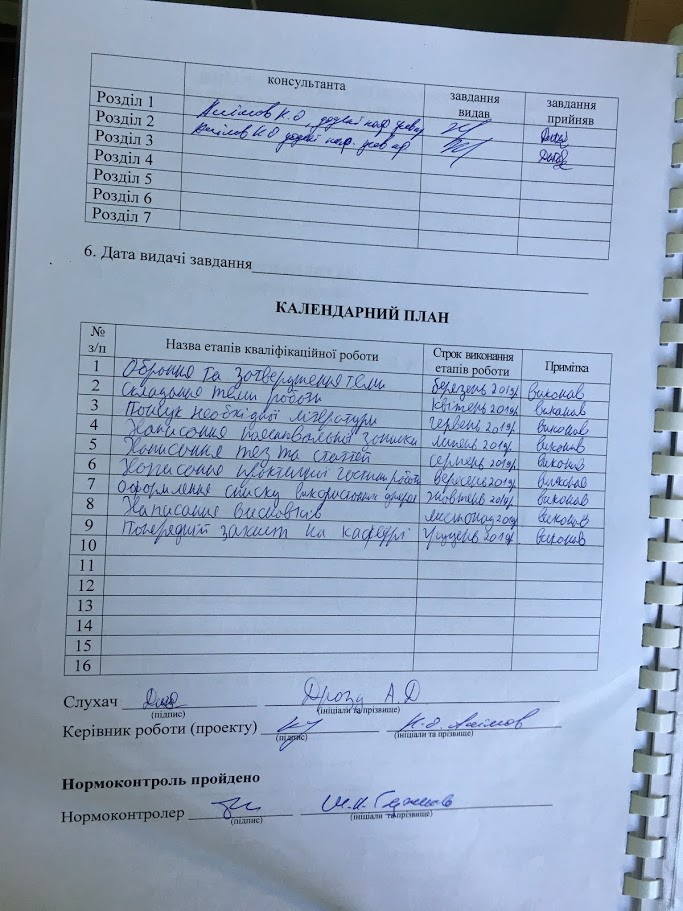 консультанта завдання видав завдання прийняв
Розділ 1
Розділ 2 Алімов К.О,
Розділ 3 Алімов К О
Розділ 4
Розділ 5
Розділ 6
Розділ 7
6. Дата видачі завдання
КАЛЕНДАРНИЙ ПЛАН
№ з/п Назва етапів кваліфікаційної роботи Строк виконання етапів роботи Примітка
1 Обрання та затвердження теми березень 2019р виконав
2 Складання теми роботи квітень 2019р виконав
3 Пошук необхідної літератури червень 2019р виконав
4 Написання записки липень 2019р виконав
5 Написання тез та статей серпень 2019р виконав
6 Написання практичної частини роботи вересень 2019р виконав
7 Оформлення списку використаних джерел жовтень 2019р виконав
8 Написання висновків листопад 2019р виконав
9 Попередній захист на кафедрі грудень 2019р виконав
10
11
12
13
14
15
16
Слухач Дрозд А.Д
(підпис) (ініціали та прізвище)
Керівник роботи (проекту) К.О. Алімов
(підпис) (ініціали та прізвище)
Нормоконтроль пройдено
Нормоконтролер
(підпис) (ініціали та прізвище)